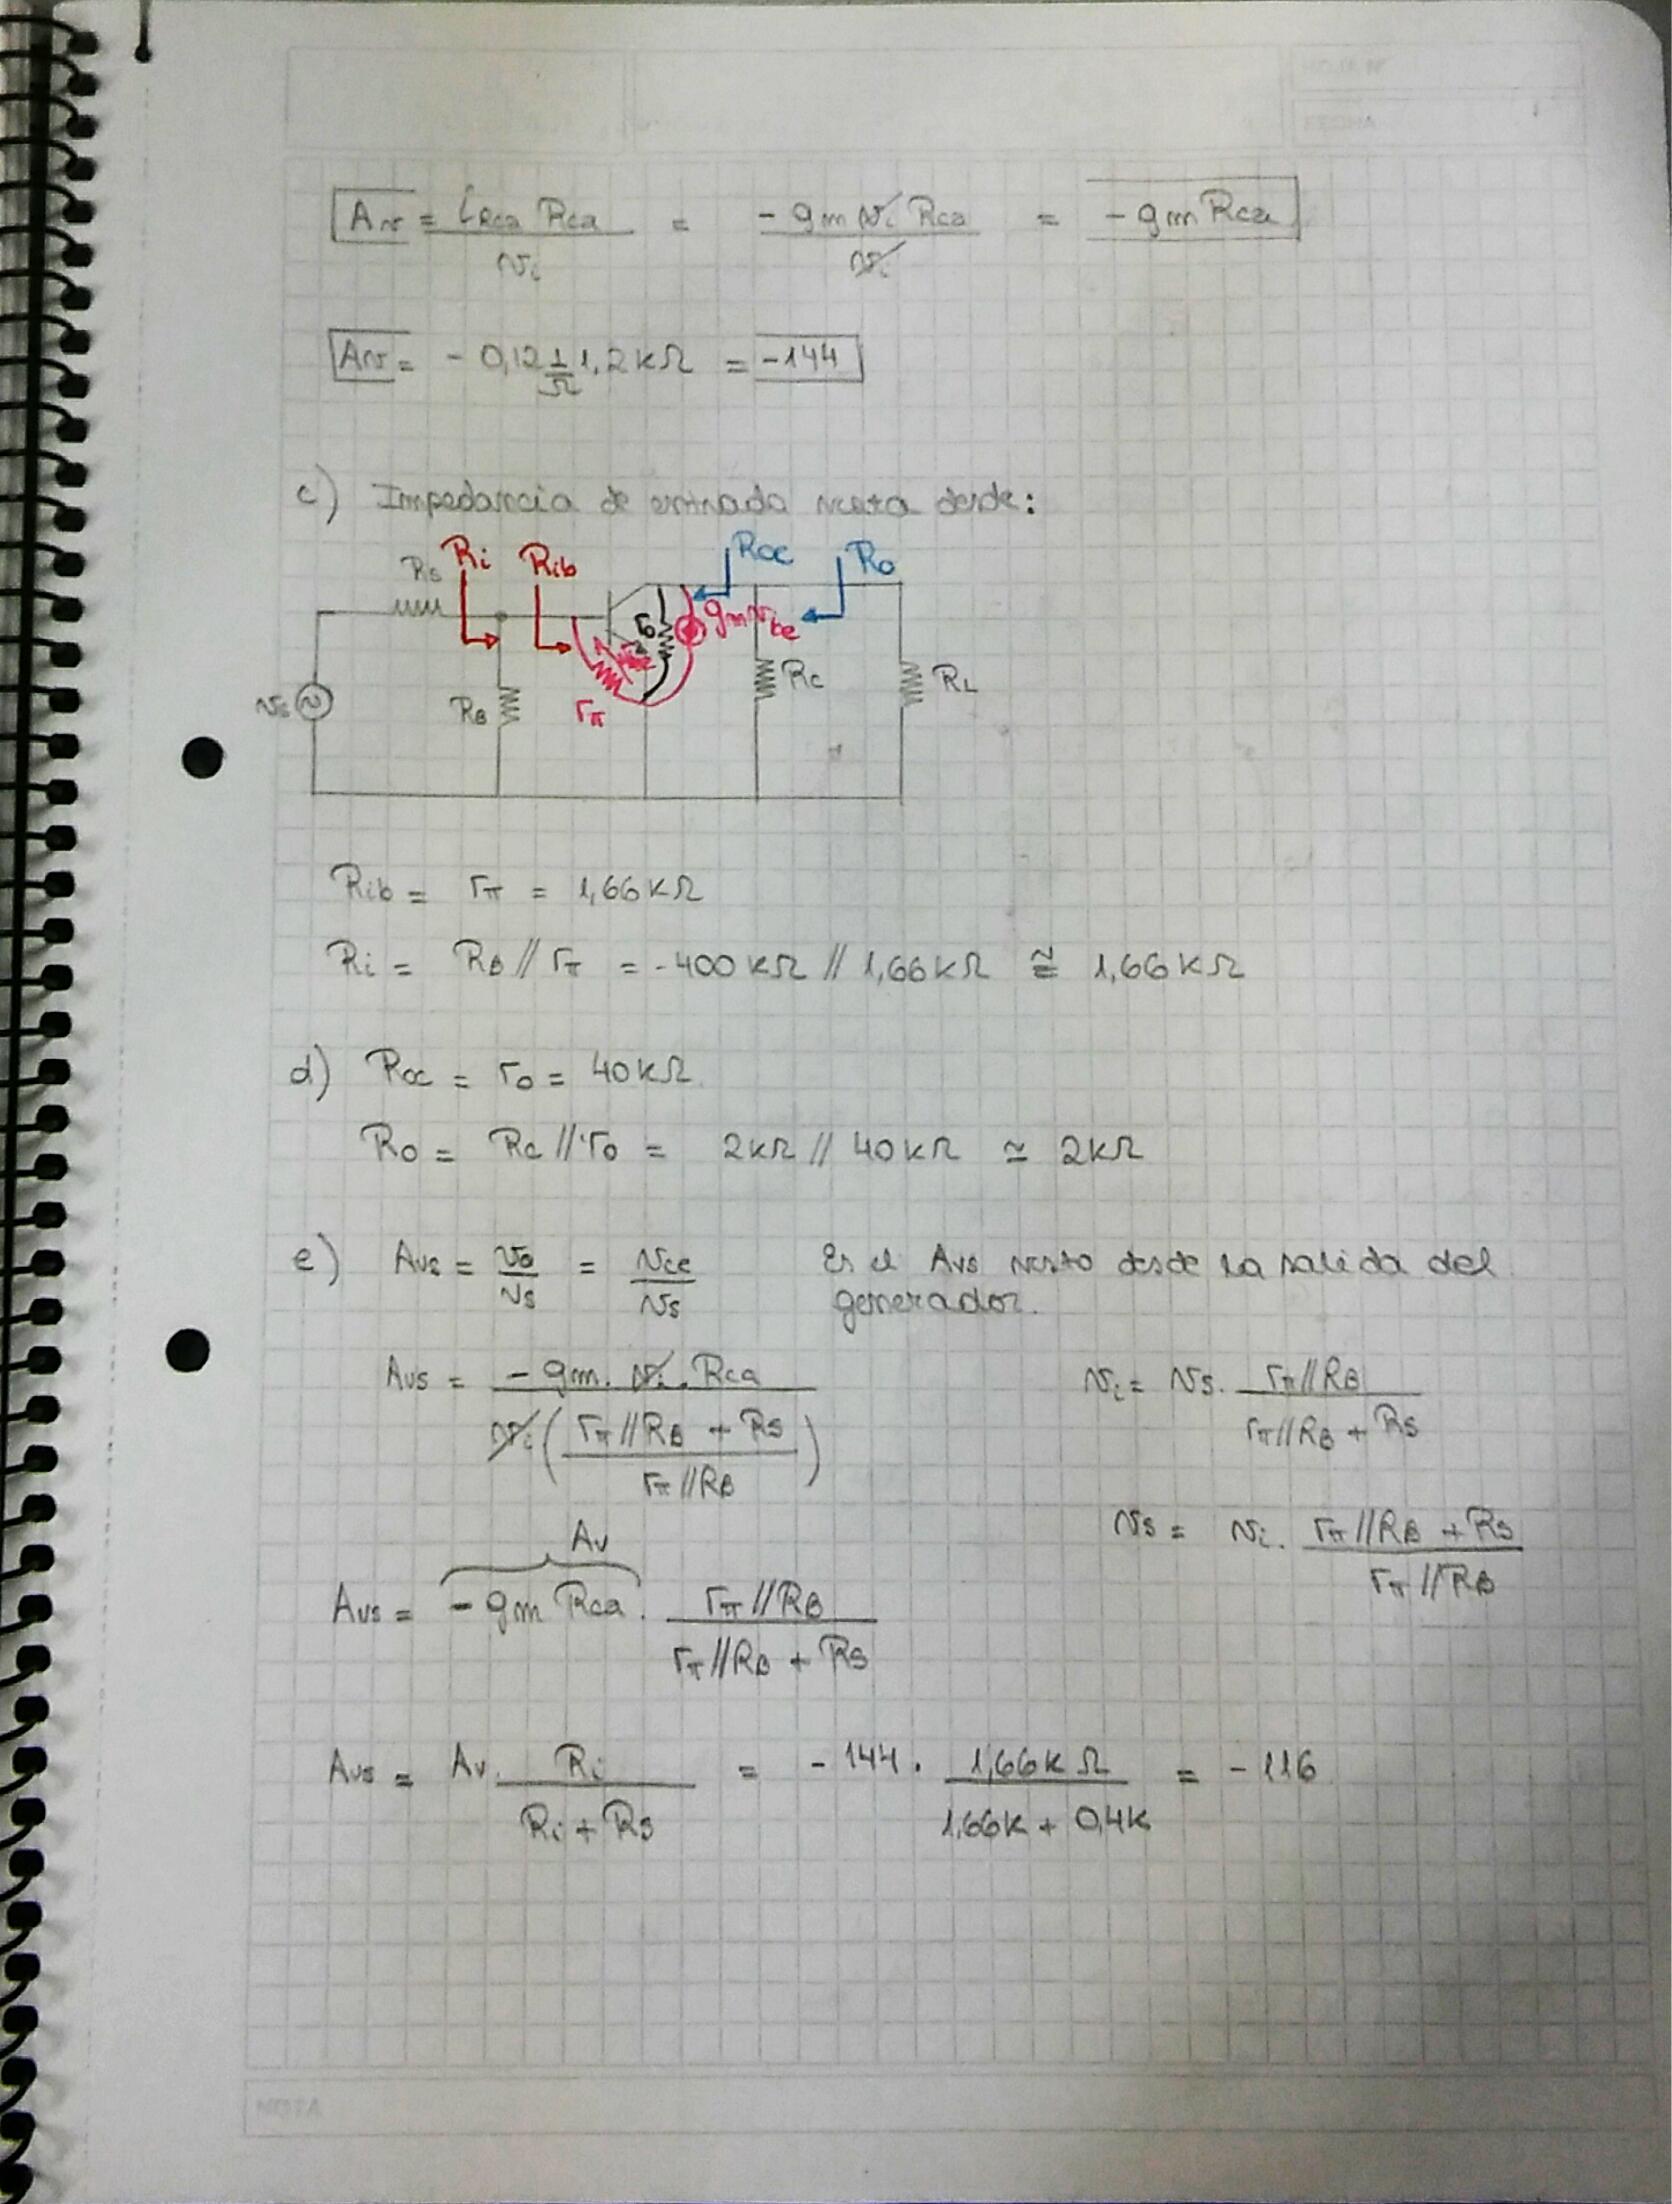 HOJA Nº
FECHA
Av = iRca Rca / vi = - gm vi Rca / vi = - gm Rca
Av = - 0,12 1/Ω 1,2 kΩ = -144
c) Impedancia de entrada vista desde:
Rs Ri Rib Roc Ro
ro gm vbe
vs RB rπ RC RL
Rib = rπ = 1,66 kΩ
Ri = RB // rπ = 400 kΩ // 1,66 kΩ ≅ 1,66 kΩ
d) Roc = ro = 40 kΩ
Ro = Rc // ro = 2 kΩ // 40 kΩ ≃ 2 kΩ
e) Avs = vo / vs = vce / vs Es el Avs visto desde la salida del
generador.
Avs = - gm . vi . Rca / vi ( rπ // RB + Rs / rπ // RB ) vi = vs . rπ // RB / rπ // RB + Rs
vs = vi . rπ // RB + Rs / rπ // RB
Av
Avs = - gm Rca . rπ // RB / rπ // RB + Rs
Avs = Av . Ri / Ri + Rs = - 144 . 1,66 k Ω / 1,66 k + 0,4 k = - 116
NOTA